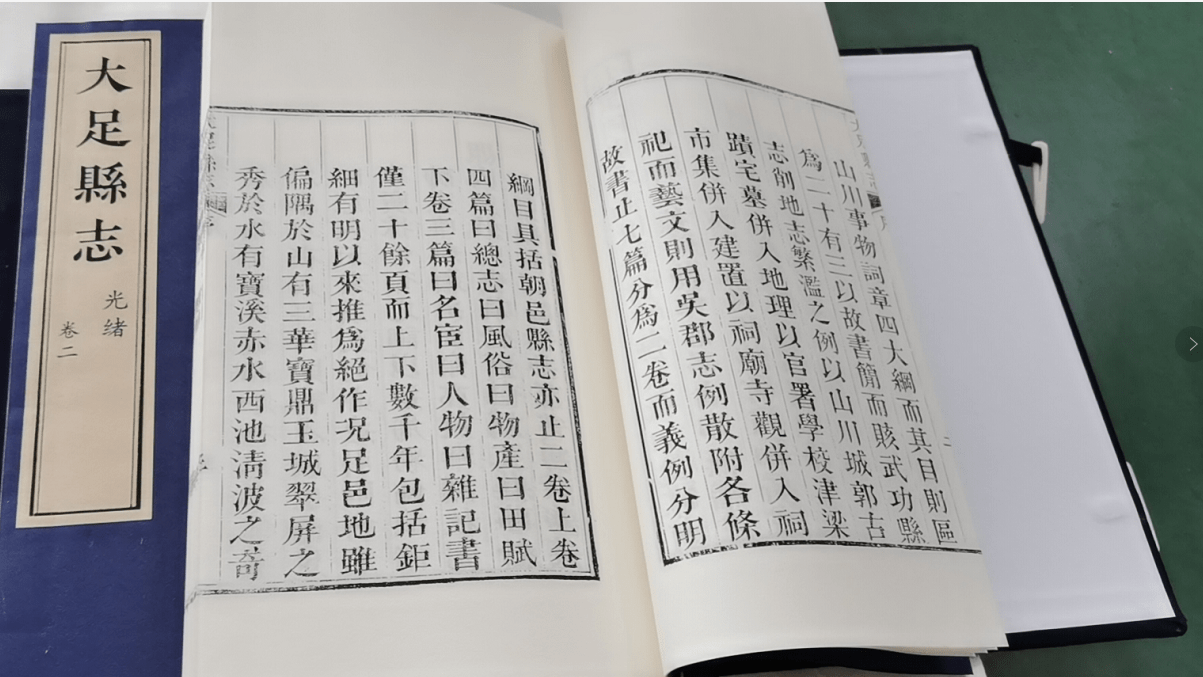 大足縣志
光緒
卷二
山川事物詞章四大綱而其目則區
爲二十有三以故書簡而賅武功縣
志削地志繁濫之例以山川城郭古
蹟宅墓併入地理以官署學校津梁
市集併入建置以祠廟寺觀併入祠
祀而藝文則用吳郡志例散附各條
故書止七篇分爲二卷而義例分明
綱目具括朝邑縣志亦止二卷上卷
四篇曰總志曰風俗曰物產曰田賦
下卷三篇曰名宦曰人物曰雜記書
僅二十餘頁而上下數千年包括鉅
細有明以來推爲絕作况足邑地雖
偏隅於山有三華寶鼎玉城翠屏之
秀於水有寶溪赤水西池淸波之奇